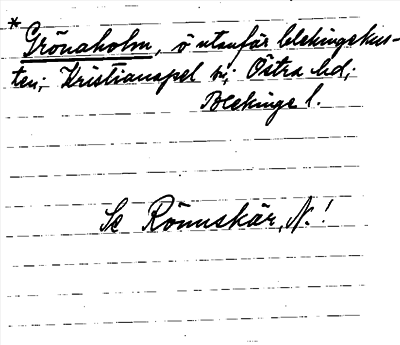 * Grönaholm, ö utanför blekingekus-
ten; Kristianopel sn; Östra hd;
Blekinge l.
Se Rönnskär, N.!